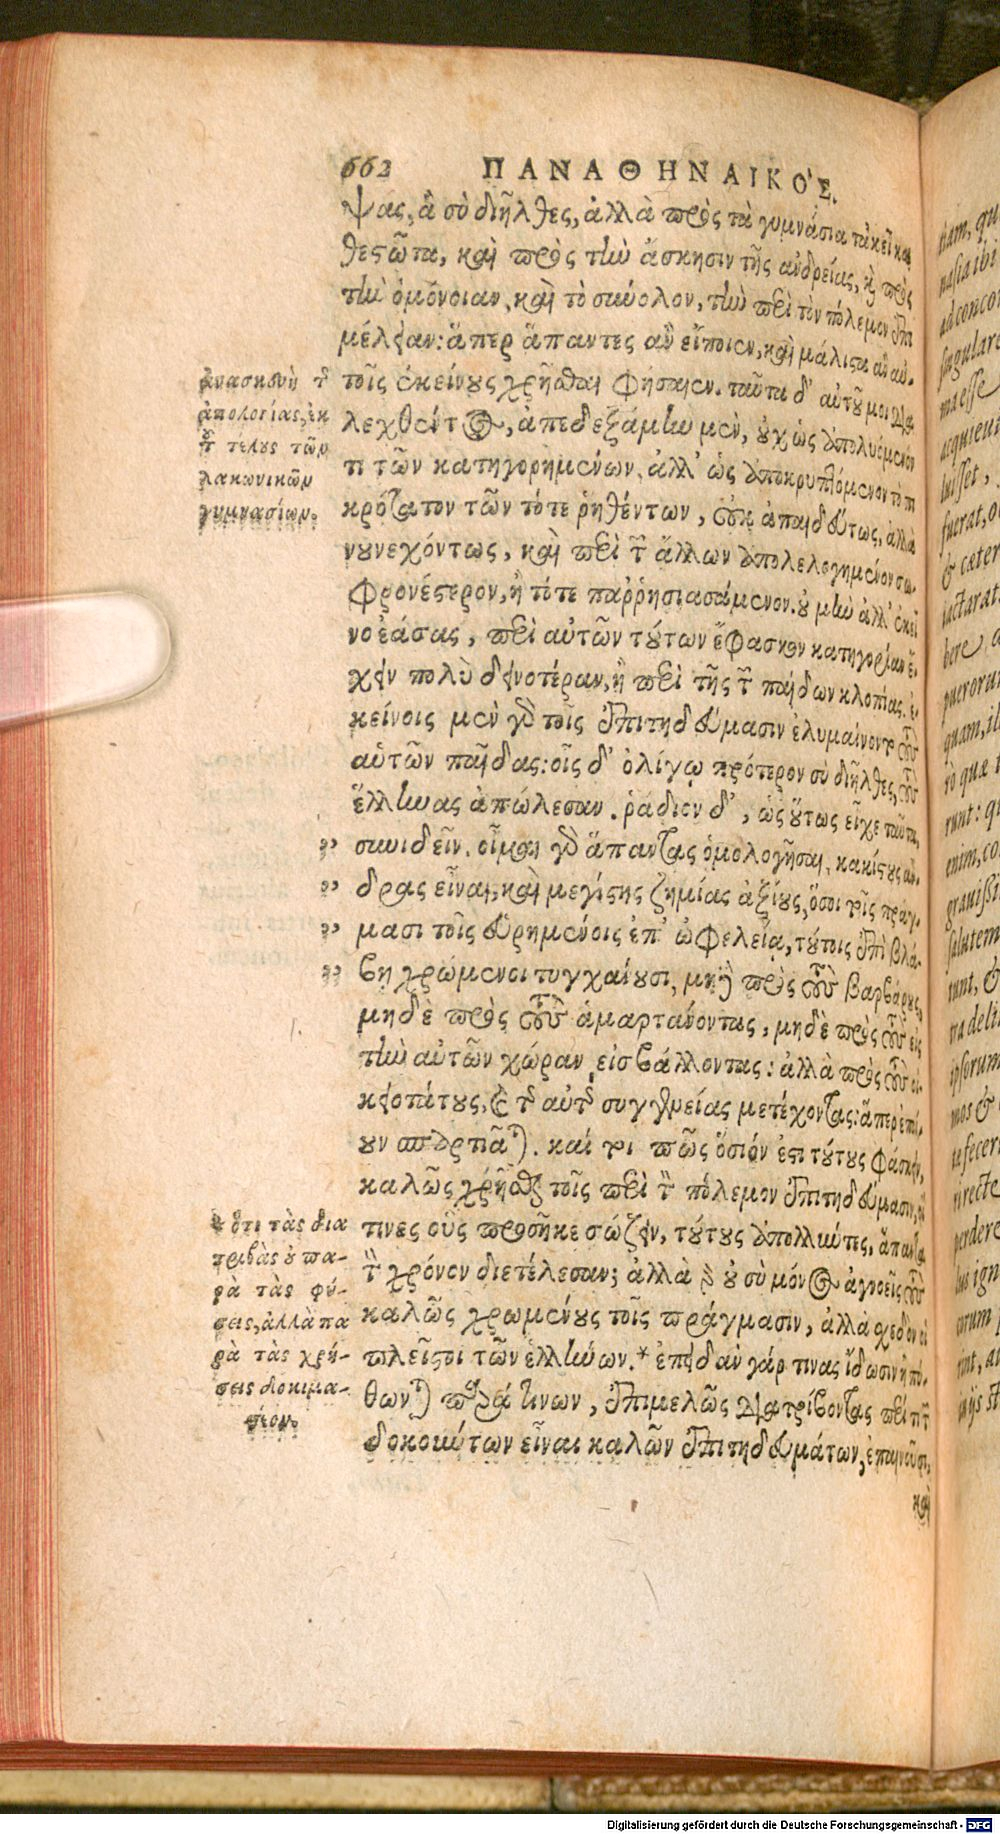 662 ΠΑΝΑΘΗΝΑΙΚΟ'Σ.
ψας, ἃ σὺ διῆλθες, ἀλλὰ πρὸς τὰ γυμνάσια τἀκεῖ κα
θεστῶτα, καὶ πρὸς τὴν ἄσκησιν τῆς ἀνδρείας, κὶ πρὸς
τὴν ὁμόνοιαν, καὶ τὸ σύνολον, τὴν περὶ τὸν πόλεμον ἐπι
μέλειαν: ἅπερ ἅπαντες ἂν εἴποιεν, καὶ μάλιστα ἂν αὐ-
τοῖς ἐκείνους χρῆσθαι φήσαιεν. ταῦτα δ' αὐτοῦ μοι δια
λεχθέντος, ἀπεδεξάμην μὲν, οὐχ ὡς ἀπολυόμενόν
τι τῶν κατηγορημένων, ἀλλ' ὡς ἀποκρυπτόμενον τὸ πι
κρότατον τῶν τότε ῥηθέντων, οὐκ ἀπαιδεύτως, ἀλλὰ
νουνεχόντως, καὶ περὶ τῶν ἄλλων ἀπολελογημένον σω-
φρονέστερον, ἢ τότε παῤῥησιασάμενον. οὐ μὴν ἀλλ' ἐκεῖ
νο ἐάσας, περὶ αὐτῶν τούτων ἔφασκον κατηγορίαν ἔ-
χειν πολὺ δεινοτέραν, ἢ περὶ τῆς τῶν παίδων κλοπίας. ἐ-
κείνοις μὲν γὰρ τοῖς ἐπιτηδεύμασιν ἐλυμαίνοντο τοὺς
αὑτῶν παῖδας: οἷς δ' ὀλίγῳ πρότερον σὺ διῆλθες, τοὺς
ἕλληνας ἀπώλεσαν. ῥᾴδιον δ', ὡς οὕτως εἶχε ταῦτα,
” συνιδεῖν. οἶμαι γὰρ ἅπαντας ὁμολογῆσαι, κακίστους ἄν-
” δρας εἶναι, καὶ μεγίστης ζημίας ἀξίους, ὅσοι τοῖς πράγ-
” μασι τοῖς εὑρημένοις ἐπ' ὠφελείᾳ, τούτοις ἐπὶ βλά-
” βῃ χρώμενοι τυγχάνουσι, μὴ πρὸς τοὺς βαρβάρους,
μηδὲ πρὸς τοὺς ἁμαρτάνοντας, μηδὲ πρὸς τοὺς εἰς
τὴν αὐτῶν χώραν εἰσβάλλοντας: ἀλλὰ πρὸς τοὺς οἰ-
κειοτάτους, καὶ τῆς αὐτῆς συγγενείας μετέχοντας: ἅπερ ἐποί-
ουν σπαρτιᾶται. καί τοι πῶς ὅσιόν ἐστι τούτους φάσκειν,
καλῶς χρῆσθαι τοῖς περὶ τὸν πόλεμον ἐπιτηδεύμασιν, οἵ
τινες οὓς προσῆκε σώζειν, τούτους ἀπολλύντες, ἅπαντα
τὸν χρόνον διετέλεσαν; ἀλλὰ γὰρ οὐ σὺ μόνος ἀγνοεῖς τοὺς
καλῶς χρωμένους τοῖς πράγμασιν, ἀλλὰ σχεδὸν οἱ
πλεῖστοι τῶν ἑλλήνων.* ἐπειδὰν γάρ τινας ἴδωσιν ἢ πύ-
θωνται παρά τινων, ἐπιμελῶς διατρίβοντας περί τι τῶν
δοκούντων εἶναι καλῶν ἐπιτηδευμάτων, ἐπαινοῦσι,
καὶ
ἀνασκευὴ τῆς
ἀπολογίας, ἐκ
τοῦ τέλους τῶν
λακωνικῶν
γυμνασίων.
* ὅτι τὰς δια
τριβὰς οὐ πα-
ρὰ τὰς φύ-
σεις, ἀλλὰ πα
ρὰ τὰς χρή-
σεις δοκιμα-
στέον.
tiam, qu
nasia ibi
ad concor
singulare
ma esse
acquieui
fuerat, 
& cæter
iactarat
bere
puerorum
quam, il
rò quæ
runt: qu
enim, co
grauissi
salutem
runt, &
tra deli
ipsorum
mos &
ta fecer
recte
perdere
lus ign
orum
rint, au
Digitalisierung gefördert durch die Deutsche Forschungsgemeinschaft - DFG